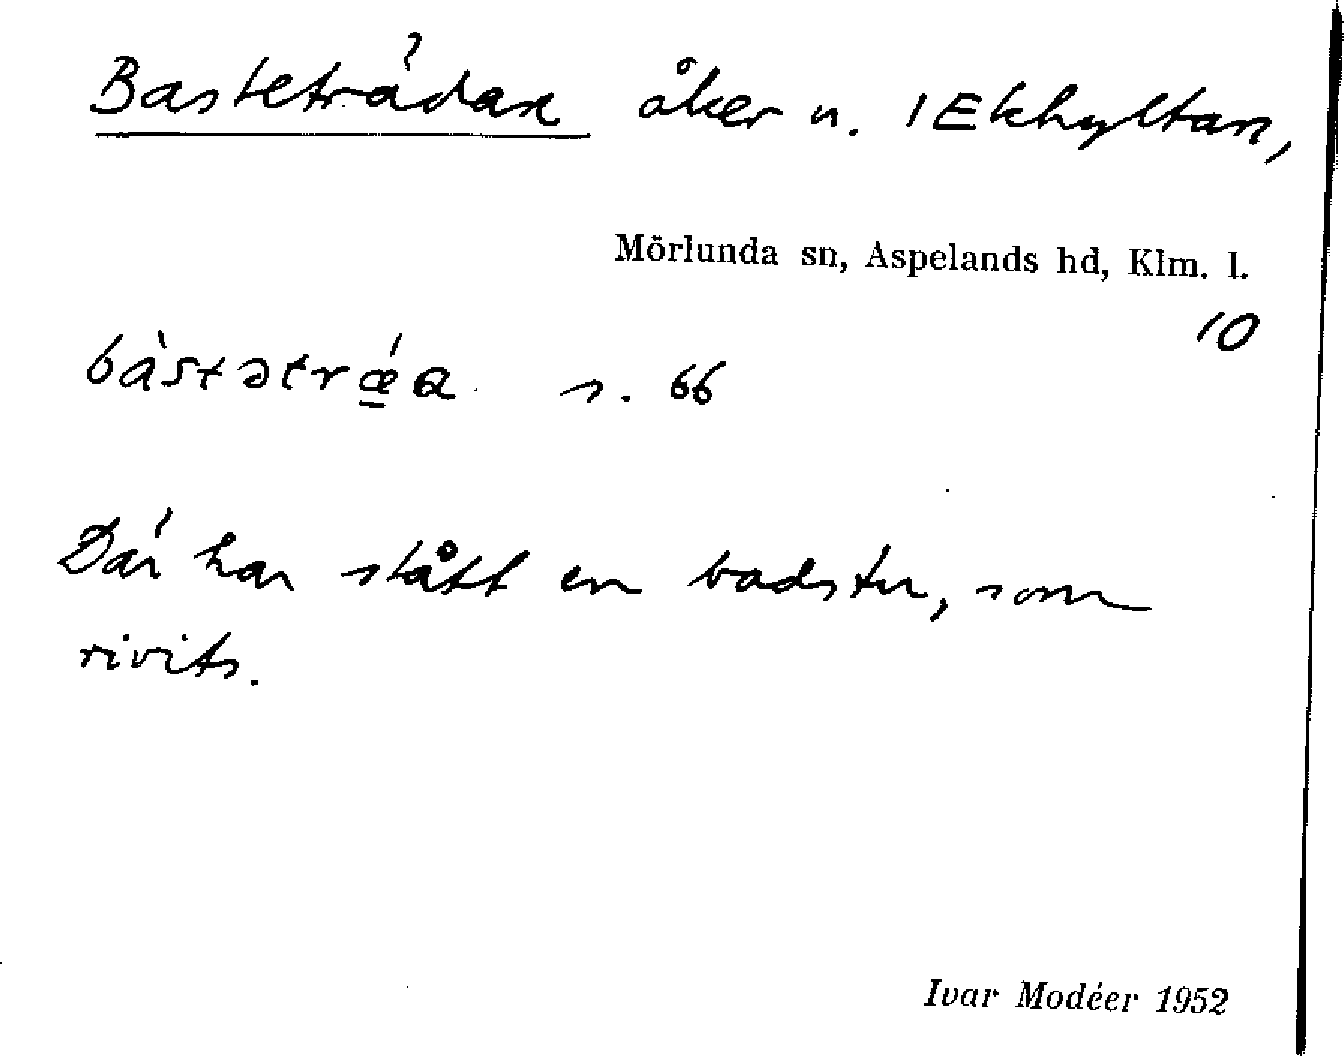 Basteträdan åker n. 1 Ekhyltan,
Mörlunda sn, Aspelands hd, Klm. l.
10
bàstətrǽa s. 66
Där har stått en badstu, som
rivits.
Ivar Modéer 1952